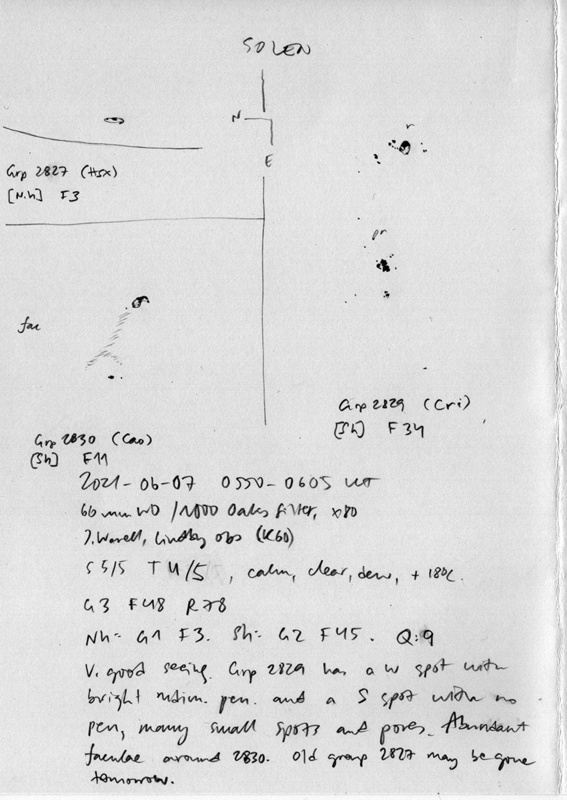 SOLEN
N
E
r
Grp 2827 (Hsx)
[N.h] F3
pr
fac
Grp 2829 (Cri)
[Sh] F34
Grp 2830 (Cao)
[Sh] F11
2021-06-07 0550-0605 UT
60 mm WO /1000 Oaks filter, x80
J. Warell, Lindby obs (K60)
S 5/5 T 4/5, calm, clear, dew, +18°C.
G3 F48 R78
Nh: G1 F3. Sh: G2 F45. Q:9
V. good seeing. Grp 2829 has a W spot with
bright pen. and a S spot with no
pen, many small spots and pores. Abundant
faculae around 2830. Old group 2827 may be gone
tomorrow.